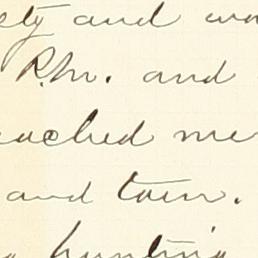 ety and wo
P.M. and
eached me
and town.
hunting